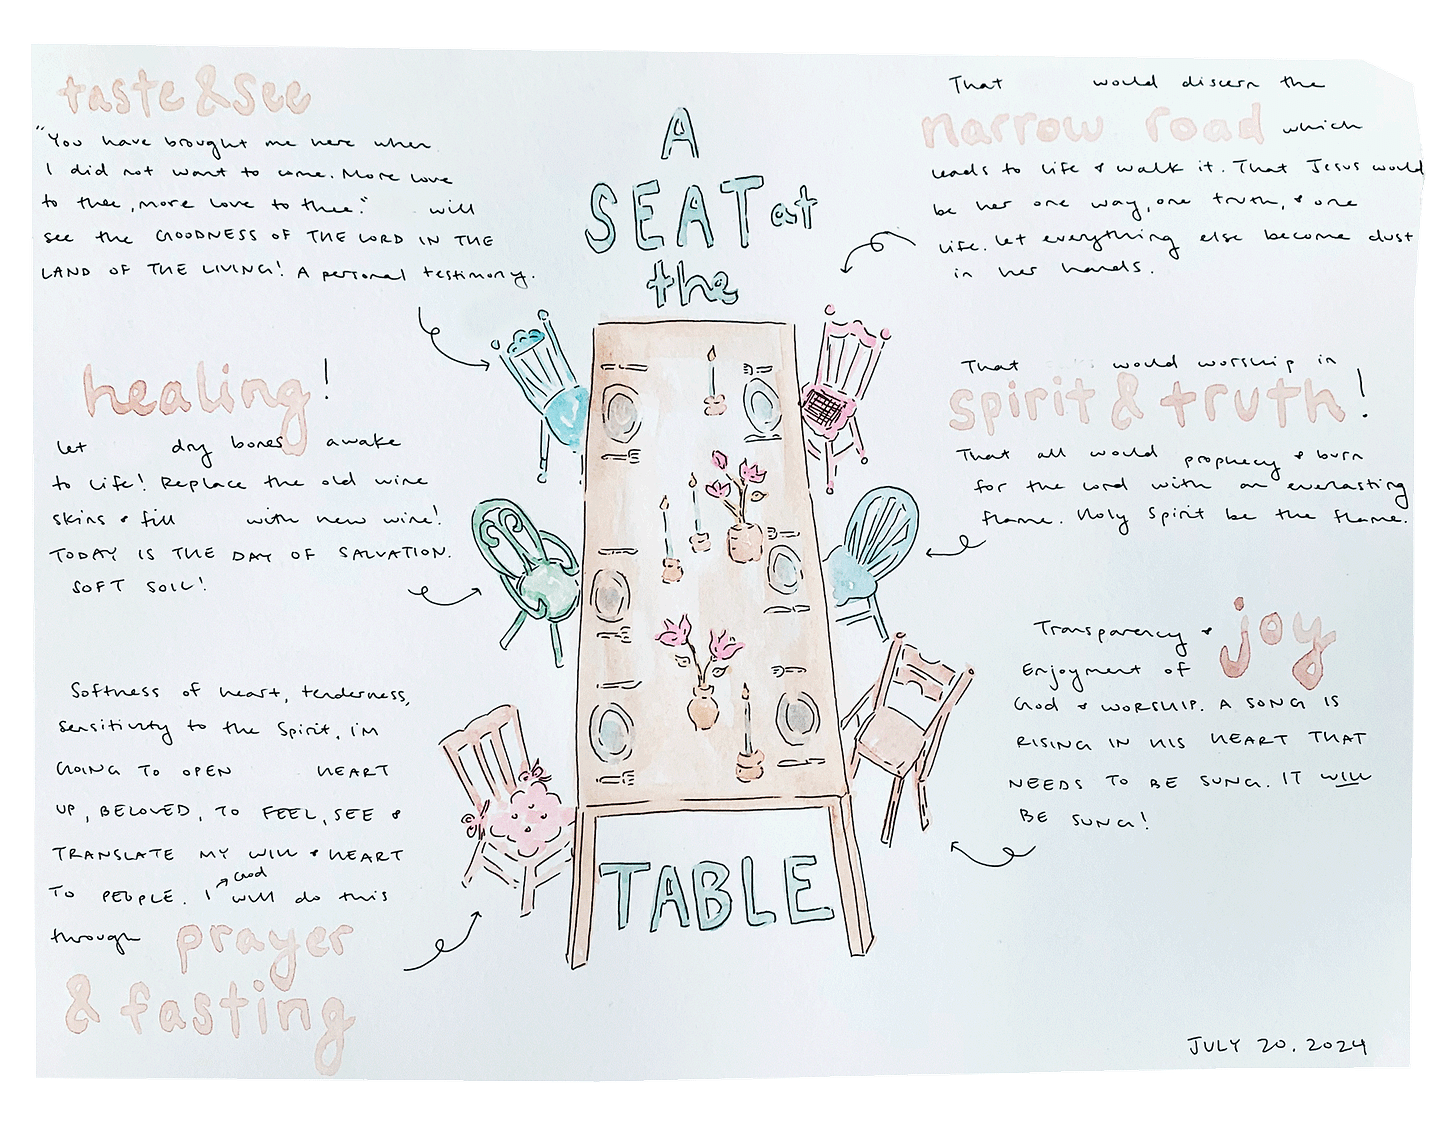 taste & see
"You have brought me here when
I did not want to come. More love
to thee, more love to thee." will
see the GOODNESS OF THE LORD IN THE
LAND OF THE LIVING! A personal testimony.
healing!
Let dry bones awake
to life! Replace the old wine
skins & fill with new wine!
TODAY IS THE DAY OF SALVATION.
SOFT SOIL!
Softness of heart, tenderness,
sensitivity to the Spirit, I'M
GOING TO OPEN HEART
UP, BELOVED, TO FEEL, SEE &
TRANSLATE MY WILL & HEART
TO PEOPLE. I will do this
God
through prayer
& fasting
A
SEAT at
the
TABLE
That would discern the
narrow road which
leads to life & walk it. That Jesus would
be her one way, one truth, & one
life. Let everything else become dust
in her hands.
That would worship in
spirit & truth!
That all would prophecy & burn
for the Lord with an everlasting
flame. Holy Spirit be the flame.
Transparency & joy
Enjoyment of
God & WORSHIP. A SONG IS
RISING IN HIS HEART THAT
NEEDS TO BE SUNG. IT WILL
BE SUNG!
JULY 20. 2024